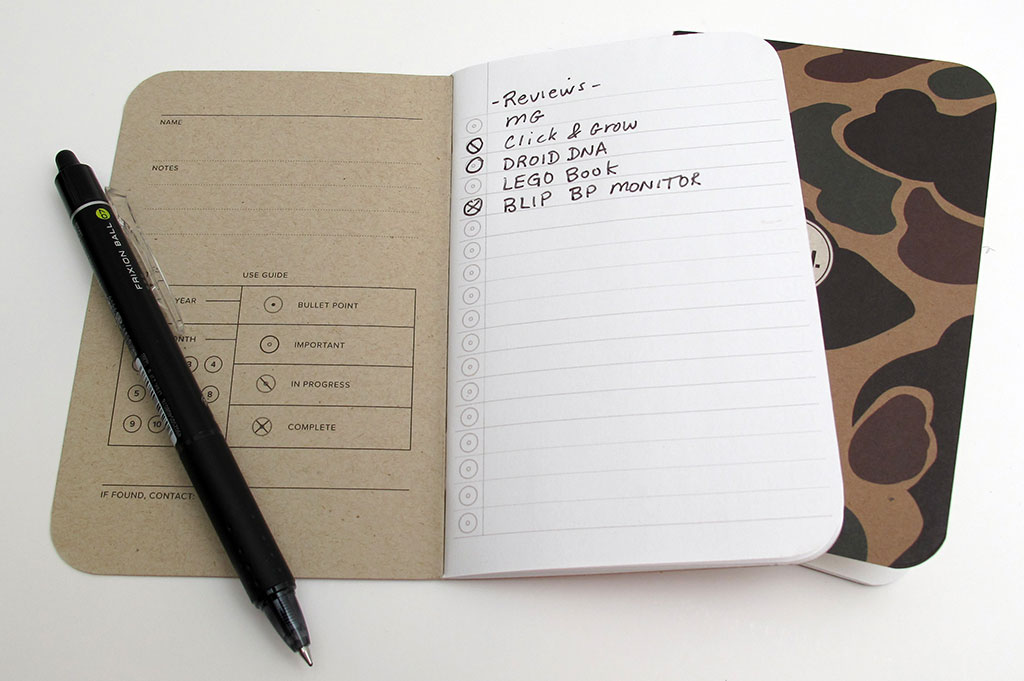 NAME
NOTES
USE GUIDE
YEAR
BULLET POINT
IMPORTANT
3 4
IN PROGRESS
5 8
COMPLETE
9 10
IF FOUND, CONTACT:
FRIXION BALL 07
-Reviews-
MG
Click & Grow
DROID DNA
LEGO Book
BLIP BP MONITOR